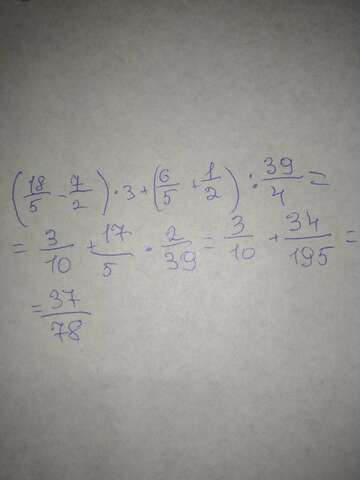 (18/5 - 7/2) · 3 + (6/5 + 1/2) : 39/4 =
= 3/10 + 17/5 · 2/39 = 3/10 + 34/195 =
= 37/78